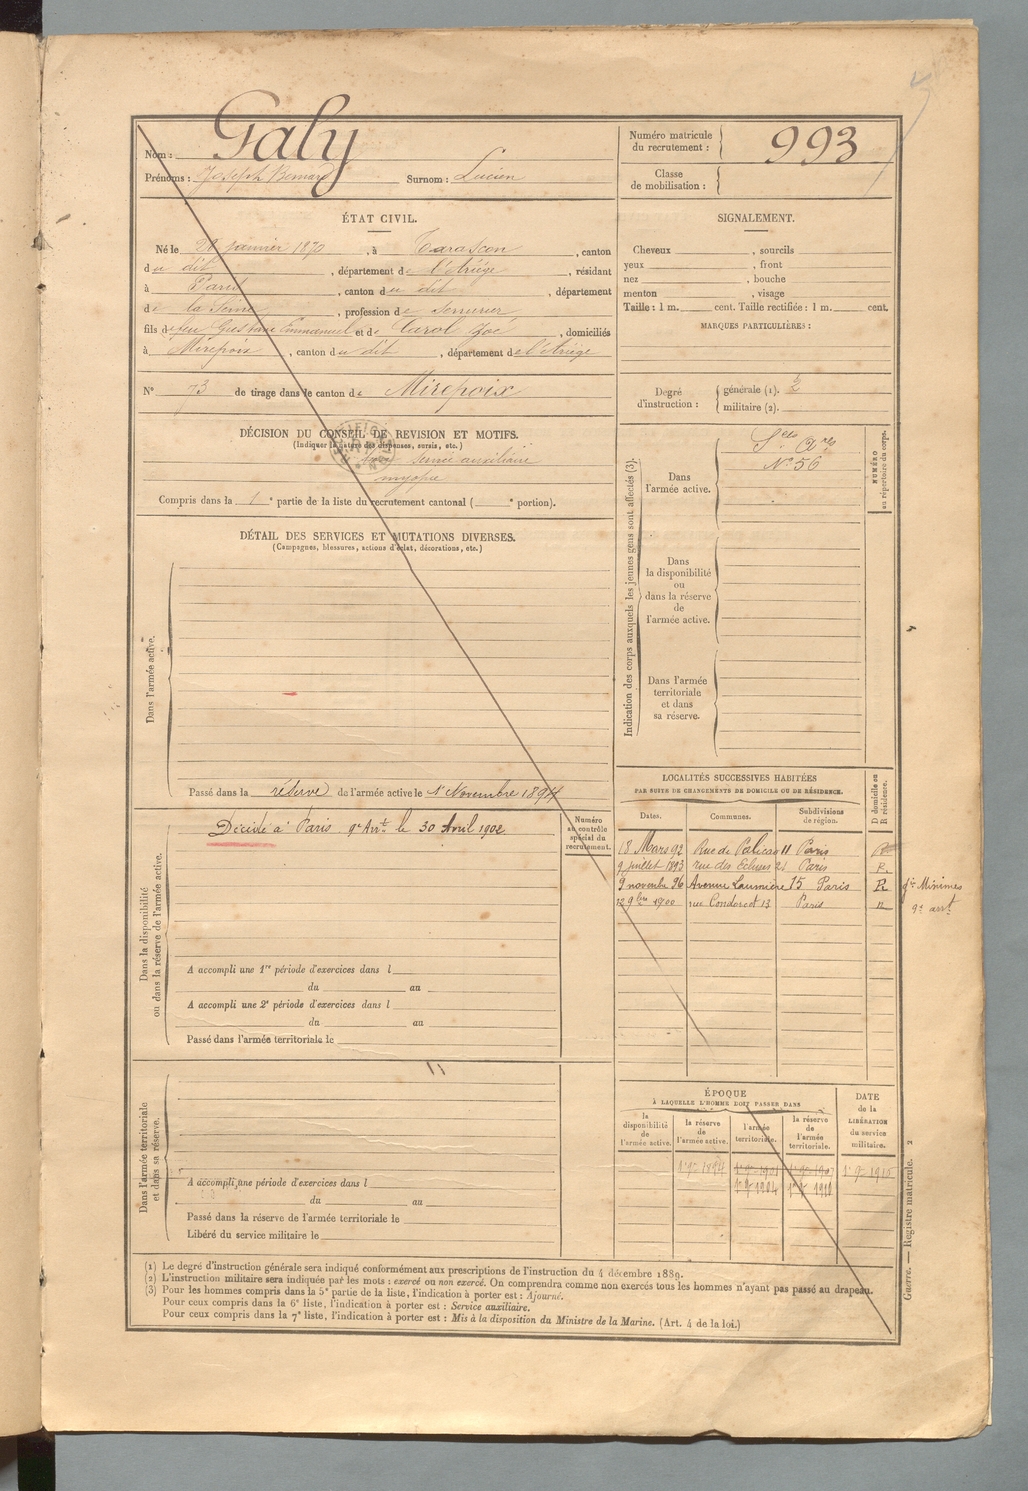 Nom : Galy
Prénoms : Joseph Bernard Surnom : Lucien
Numéro matricule du recrutement : 993
Classe de mobilisation :
ÉTAT CIVIL.
Né le janvier 1870, à Tarascon, canton
du dit, département de l'Ariège, résidant
à Paris, canton du dit, département
de la Seine, profession de serrurier
fils de feu Gustave Emmanuel et de Carol Zoé, domiciliés
à Mirepoix, canton du dit, département de l'Ariège
N° 73 de tirage dans le canton de Mirepoix
SIGNALEMENT.
Cheveux , sourcils
yeux , front
nez , bouche
menton , visage
Taille : 1 m. cent. Taille rectifiée : 1 m. cent.
MARQUES PARTICULIÈRES :
Degré d'instruction : générale (1). 2
militaire (2).
DÉCISION DU CONSEIL DE REVISION ET MOTIFS.
(Indiquer la nature des dispenses, sursis, etc.)
service auxiliaire
myopie
Compris dans la 1e partie de la liste du recrutement cantonal ( e portion).
DÉTAIL DES SERVICES ET MUTATIONS DIVERSES.
(Campagnes, blessures, actions d'éclat, décorations, etc.)
Dans l'armée active.
Passé dans la réserve de l'armée active le 1er Novembre 1894
Indication des corps auxquels les jeunes gens sont affectés (3).
Dans l'armée active.
N° 56
NUMÉRO au répertoire du corps.
Dans la disponibilité ou dans la réserve de l'armée active.
Dans l'armée territoriale et dans sa réserve.
Dans la disponibilité ou dans la réserve de l'armée active.
Décédé à Paris 9e Arrt le 30 Avril 1902
Numéro au contrôle spécial du recrutement.
A accompli une 1re période d'exercices dans l
du au
A accompli une 2e période d'exercices dans l
du au
Passé dans l'armée territoriale le
LOCALITÉS SUCCESSIVES HABITÉES
PAR SUITE DE CHANGEMENTS DE DOMICILE OU DE RÉSIDENCE.
D domicile ou R résidence.
Dates. Communes. Subdivisions de région.
18 Mars 92 Rue de Palicao 11 Paris R
9 juillet 1893 rue des Ecluses Paris R
9 novembre 96 Avenue Laumière 15 Paris R
12 9bre 1900 rue Condorcet 13 Paris R
Minimes
9e arrt
Dans l'armée territoriale et dans sa réserve.
A accompli une période d'exercices dans l
du au
Passé dans la réserve de l'armée territoriale le
Libéré du service militaire le
ÉPOQUE
À LAQUELLE L'HOMME DOIT PASSER DANS
la disponibilité de l'armée active. la réserve de l'armée active. l'armée territoriale. la réserve de l'armée territoriale.
DATE de la LIBÉRATION du service militaire.
(1) Le degré d'instruction générale sera indiqué conformément aux prescriptions de l'instruction du 4 décembre 1889.
(2) L'instruction militaire sera indiquée par les mots : exercé ou non exercé. On comprendra comme non exercés tous les hommes n'ayant pas passé au drapeau.
(3) Pour les hommes compris dans la 5e partie de la liste, l'indication à porter est : Ajourné.
Pour ceux compris dans la 6e liste, l'indication à porter est : Service auxiliaire.
Pour ceux compris dans la 7e liste, l'indication à porter est : Mis à la disposition du Ministre de la Marine. (Art. 4 de la loi.)
Guerre. — Registre matricule. 2